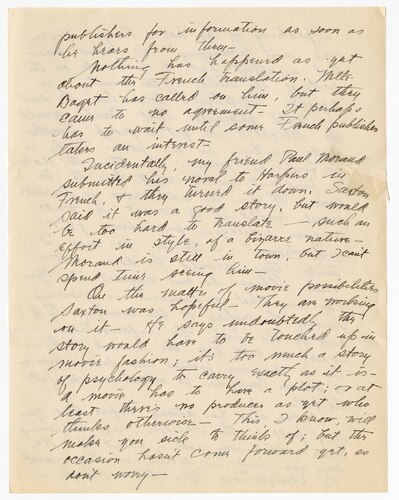 publishers for information as soon as
he hears from them—
Nothing has happened as yet
about the French translation. Mlle.
Baget has called on him, but they
came to no agreement— It perhaps
has to wait until some French publisher
takes an interest—
Incidentally, my friend Paul Morand
submitted his novel to Harpers in
French, & they turned it down. Saxton
said it was a good story, but would
be too hard to translate — such an
effort in style, of a bizarre nature—
Morand is still in town, but I can't
spend time seeing him—
On the matter of movie possibilities
Saxton was hopeful— They are working
on it— He says undoubtedly the
story would have to be touched up in
movie fashion; it's too much a story
of psychology to carry exactly as it is—
a movie has to have a plot; or at
least there's no producer as yet who
thinks otherwise— This, I know, will
make you sick to think of; but the
occasion hasn't come forward yet, so
don't worry—